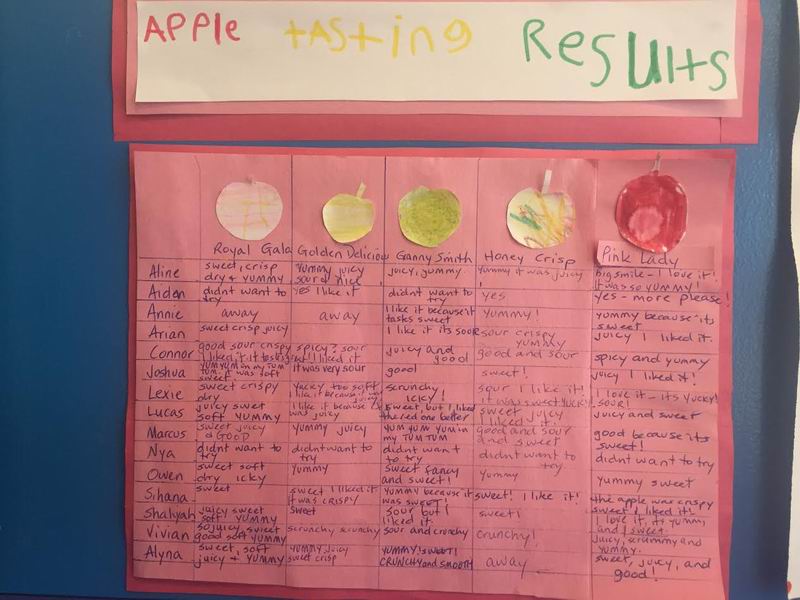 APPle tASting ReSUltS
Royal Gala Golden Delicious Ganny Smith Honey Crisp Pink Lady
Aline sweet, crisp dry + yummy yummy juicy sour & nice juicy, yummy. yummy it was juicy big smile - I love it! it was so yummy!
Aiden didnt want to try yes I like it didnt want to try yes yes - more please!
Annie away away I like it because it tasks sweet yummy! yummy because its sweet
Arian sweet crisp juicy I like it its sour sour crispy yummy juicy I liked it.
Connor good sour crispy I liked it spicy? sour I liked it juicy and good good and sour spicy and yummy
Joshua yum yum in my tum tum. it was soft sweet. it was very sour good sweet! juicy I liked it!
Lexie sweet crispy dry yucky too soft scrunchy icky! sour I like it! it was sweet yucky I love it - its yucky! sour!
Lucas juicy sweet soft yummy I like it because it was juicy sweet, but I liked the red one better sweet juicy liked it. juicy and sweet
Marcus sweet juicy GOOD yummy juicy yum yum yum in my tum tum good and sour and sweet good because its sweet!
Nya didnt want to try didnt want to try didnt want to try didnt want to try. didnt want to try
Owen sweet soft dry icky yummy sweet fancy and sweet! yummy yummy sweet
Sihana sweet sweet I liked it it was crispy yummy because it was sweet! sweet! I like it! the apple was crispy sweet I liked it!
Shaliyah juicy sweet soft! yummy sweet sour but I liked it. sweet! I love it, its yummy, and sweet
Vivian so juicy, sweet good soft yummy scrunchy scrunchy sour and crunchy crunchy! juicy, scrummy and yummy.
Alyna sweet, soft juicy + yummy yummy, juicy sweet crisp yummy! sweet! crunchy and smooth away sweet, juicy, and good!